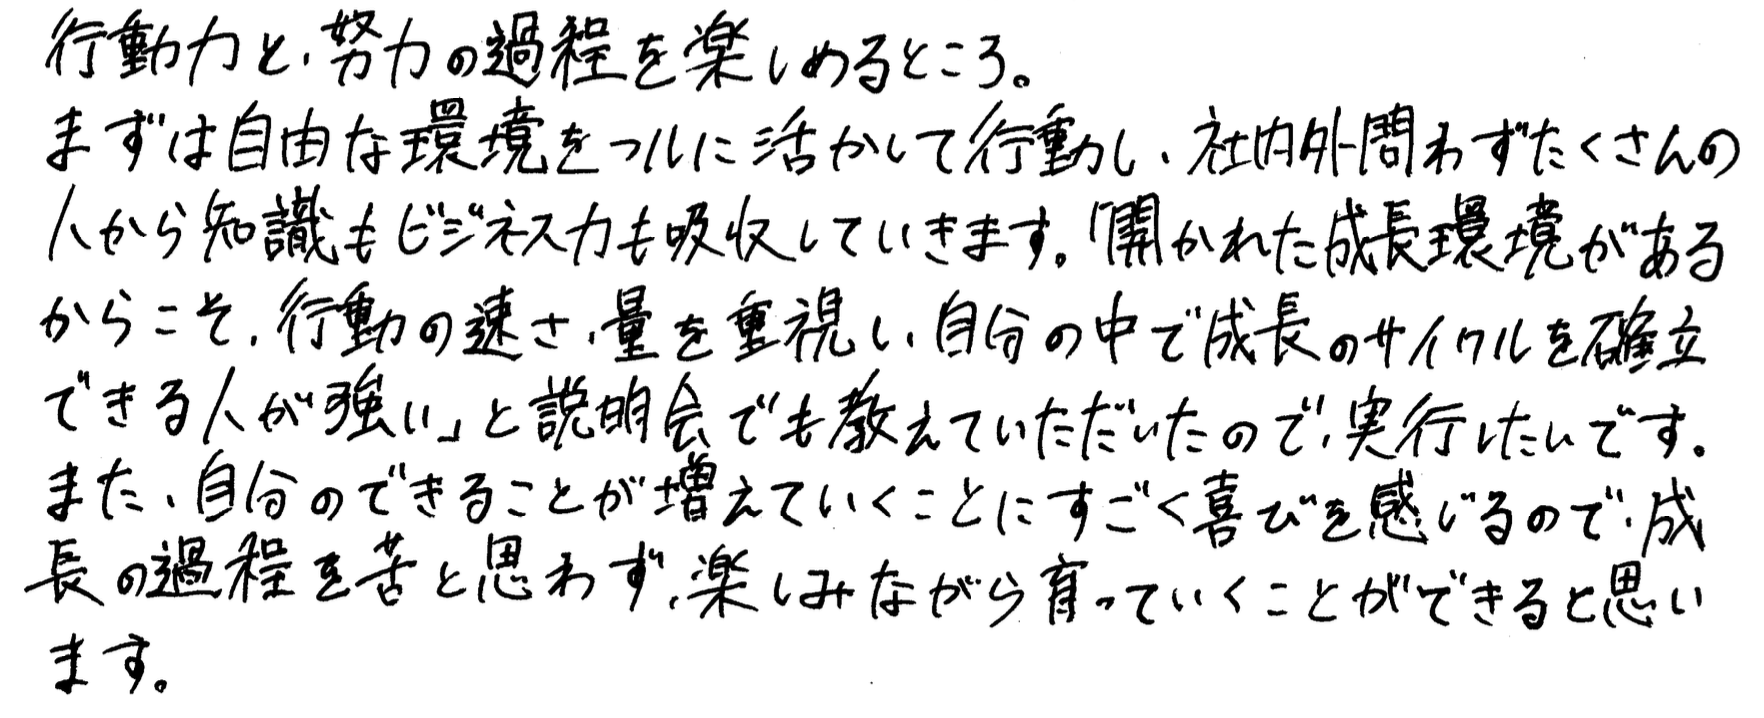 行動力と、努力の過程を楽しめるところ。
まずは自由な環境をフルに活かして行動し、社内外問わずたくさんの
人から知識もビジネス力も吸収していきます。「開かれた成長環境がある
からこそ、行動の速さ、量を重視し、自分の中で成長のサイクルを確立
できる人が強い」と説明会でも教えていただいたので、実行したいです。
また、自分のできることが増えていくことにすごく喜びを感じるので、成
長の過程を苦と思わず、楽しみながら育っていくことができると思い
ます。